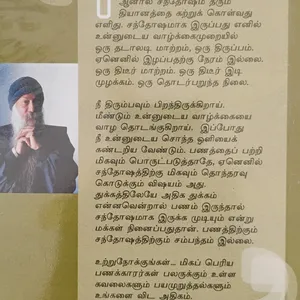 ஆனால் சந்தோஷம் தரும்
தியானத்தை கற்றுக் கொள்வது
எளிது. சந்தோஷமாக இருப்பது எனில்
உன்னுடைய வாழ்க்கைமுறையில்
ஒரு தடாலடி மாற்றம், ஒரு திருப்பம்.
ஏனெனில் இழப்பதற்கு நேரம் இல்லை.
ஒரு திடீர் மாற்றம். ஒரு திடீர் இடி
முழக்கம். ஒரு தொடர்பறுந்த நிலை.
நீ திரும்பவும் பிறந்திருக்கிறாய்.
மீண்டும் உன்னுடைய வாழ்க்கையை
வாழ தொடங்குகிறாய். இப்போது
நீ உன்னுடைய சொந்த ஒளியைக்
கண்டறிய வேண்டும். பணத்தைப் பற்றி
மிகவும் பொருட்படுத்தாதே, ஏனெனில்
சந்தோஷத்திற்கு மிகவும் தொந்தரவு
கொடுக்கும் விஷயம் அது.
துக்கத்திலேயே அதிக துக்கம்
என்னவென்றால் பணம் இருந்தால்
சந்தோஷமாக இருக்க முடியும் என்று
மக்கள் நினைப்பதுதான். பணத்திற்கும்
சந்தோஷத்திற்கும் சம்பந்தம் இல்லை.
உற்றுநோக்குங்கள்... மிகப் பெரிய
பணக்காரர்கள் பலருக்கும் உள்ள
கவலைகளும் பயமுறுத்தல்களும்
உங்களை விட அதிகம்.